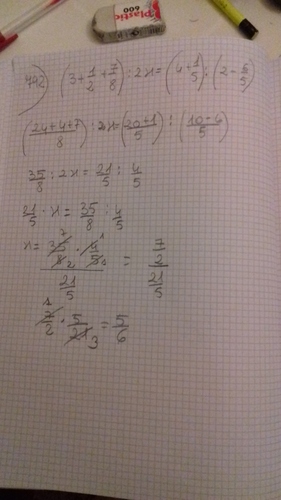 plastic
600
492) (3+1/2+7/8):2x=(4+1/5):(2-6/5)
(24+4+7/8):2x=(20+1/5):(10-6/5)
35/8:2x=21/5:4/5
21/5·x=35/8:4/5
x=35/8·4/5/21/5=7/2/21/5
7 1 2 1
1
7/2·5/21=5/6
3